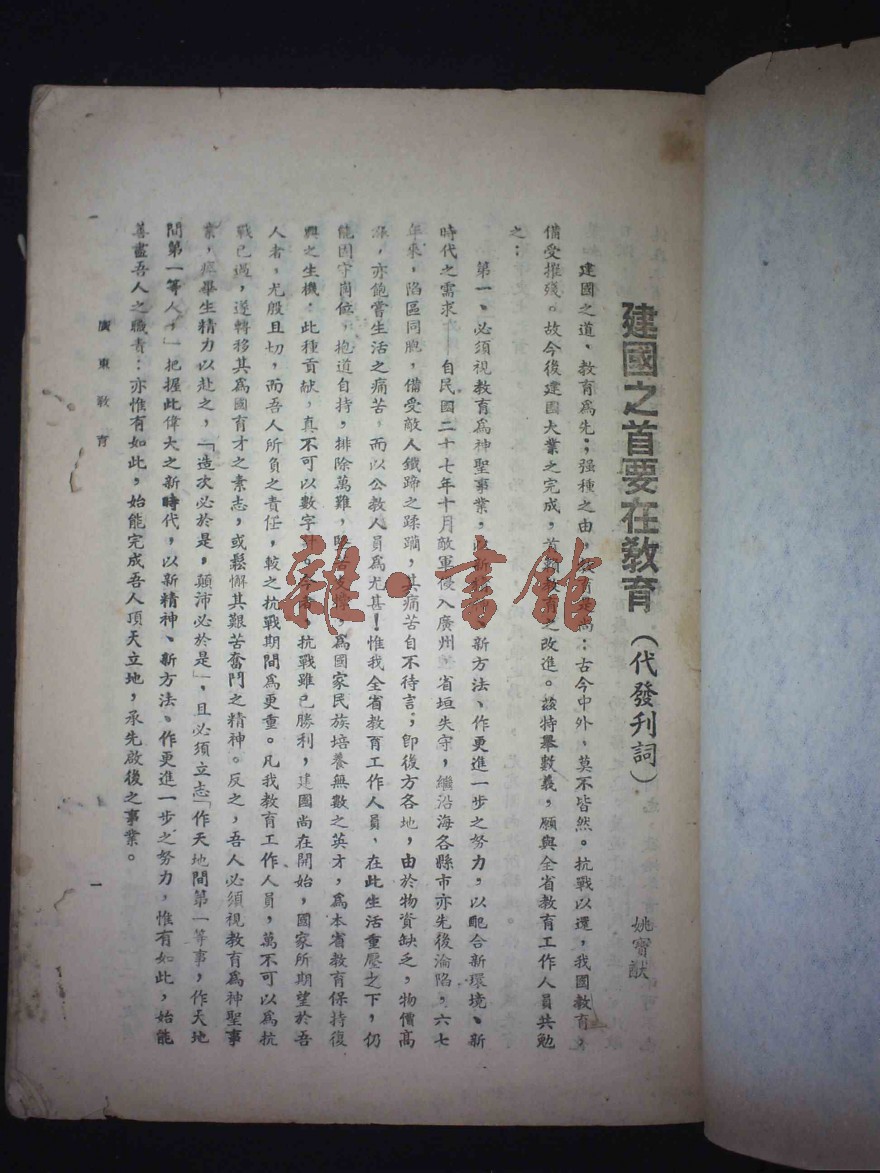 建國之首要在教育(代發刊詞)
姚寶猷
建國之道、教育爲先;强種之由,教育是尚:古今中外,莫不皆然。抗戰以還,我國教育,
備受摧殘。故今後建國大業之完成,首賴教育之改進。茲特舉數義,願與全省教育工作人員共勉
之:
第一、必須視教育爲神聖事業,以新精神、新方法、作更進一步之努力,以配合新環境、新
時代之需求——自民國二十七年十月敵軍侵入廣州,省垣失守,繼沿海各縣市亦先後淪陷,六七
年來,陷區同胞,備受敵人鐵蹄之蹂躪,其痛苦自不待言;卽後方各地,由於物資缺乏,物價高
漲,亦飽嘗生活之痛苦,而以公教人員爲尤甚!惟我全省教育工作人員、在此生活重壓之下,仍
能固守崗位,抱道自持,排除萬難,支撐,爲國家民族培養無數之英才,爲本省教育保持復
興之生機,此種貢献,真不可以數字計。今者,抗戰雖已勝利,建國尚在開始,國家所期望於吾
人者,尤殷且切,而吾人所負之責任,較之抗戰期間爲更重。凡我教育工作人員,萬不可以爲抗
戰已過,遂轉移其爲國育才之素志,或鬆懈其艱苦奮鬥之精神。反之,吾人必須視教育爲神聖事
業,畢生精力以赴之,「造次必於是,顛沛必於是」,且必須立志「作天地間第一等事,作天地
間第一等人,」把握此偉大之新時代,以新精神、新方法、作更進一步之努力,惟有如此,始能
善盡吾人之職責:亦惟有如此,始能完成吾人頂天立地,承先啟後之事業。
廣東教育
一
雜·書館